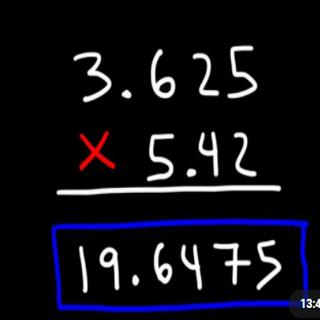 3.625
× 5.42
19.6475
13:4